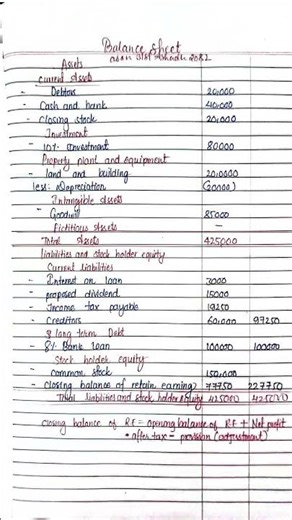 Balance sheet
as on 31st Ashadh 2082
Assets
Current Assets
- Debtors 20,000
- Cash and bank 40,000
- Closing stock 20,000
Investment
- 10% investment 80000
Property plant and equipment
- land and building 20,0000
less: Depreciation (20000)
Intangible Assets
- Goodwill 85000
Fictitious Assets -
Total Assets 425000
liabilities and stock holder equity
Current liabilities
- Interest on loan 3000
- proposed dividend 15000
- Income tax payable 19250
- Creditors 60,000 97250
long term Debt
- 8% Bank loan 100000 100000
Stock holder equity
- common stock 150,000
- closing balance of retain earning 77750 227750
Total liabilities and stock holder equity 425000 425000
closing balance of RE = opening balance of RE + Net profit
after tax - provision (adjustment)